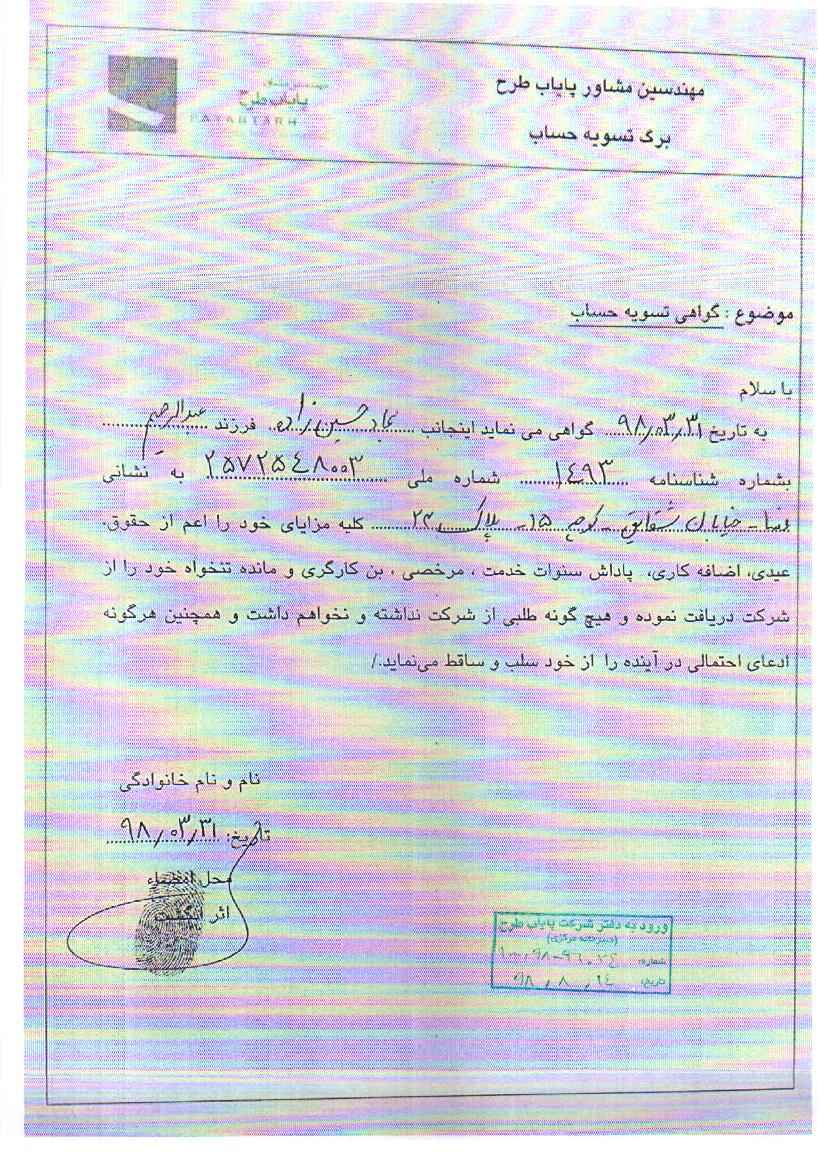 مهندسین مشاور پایاب طرح
برگ تسویه حساب
مهندسین مشاور
پایاب طرح
PAYABTARH
موضوع : گواهی تسویه حساب
با سلام
به تاریخ ۹۸٫۰۳٫۳۱ گواهی می نماید اینجانب عماد حسین زاده فرزند عبدالرحیم
بشماره شناسنامه ۱۴۹۳ شماره ملی ۲۵۷۲۵۴۸۰۰۳ به نشانی
فسا - خیابان شقایق - کوچه ۱۵ - پلاک ۲۳ کلیه مزایای خود را اعم از حقوق،
عیدی، اضافه کاری، پاداش سنوات خدمت ، مرخصی ، بن کارگری و مانده تنخواه خود را از
شرکت دریافت نموده و هیچ گونه طلبی از شرکت نداشته و نخواهم داشت و همچنین هرگونه
ادعای احتمالی در آینده را از خود سلب و ساقط می‌نماید./
نام و نام خانوادگی
تاریخ: ۹۸٫۰۳٫۳۱
محل امضاء
اثر انگشت
ورود به دفتر شرکت پایاب طرح
(دبیرخانه مرکزی)
شماره:
تاریخ: ۹۸ / ۸ / ۱۴